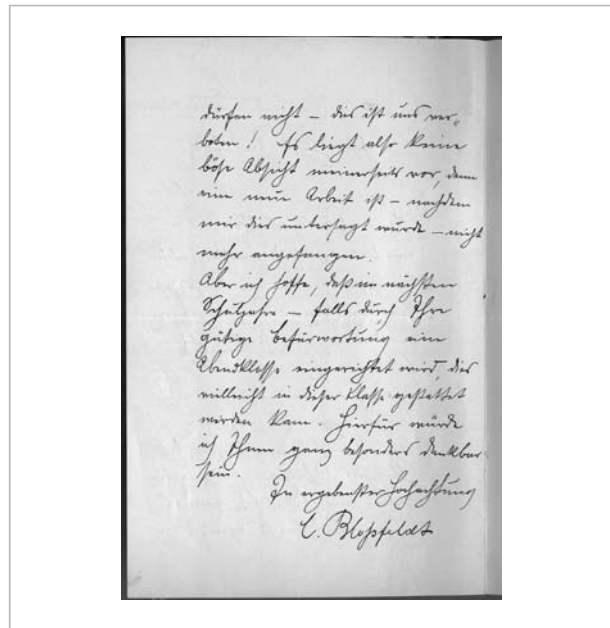 dürfen nicht – dies ist uns ver-
boten! Es liegt also keine
böse Absicht meinerseits vor, denn
eine neue Arbeit ist – nachdem
mir dies untersagt wurde – nicht
mehr angefangen.
Aber ich hoffe, daß im nächsten
Schuljahre – falls durch Ihre
gütige Befürwortung eine
Abendklasse eingerichtet wird, dies
vielleicht in dieser Klasse gestattet
werden kann. Hierfür würde
ich Ihnen ganz besonders dankbar
sein.
In ergebenster Hochachtung
C. Bloßfeldt